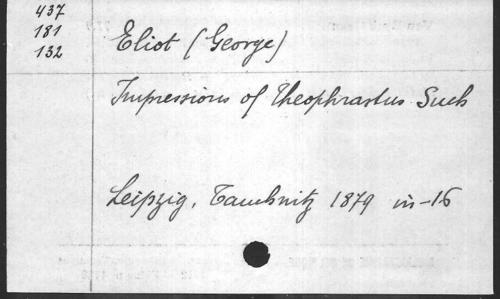 437
181
132
Eliot (George)
Impressions of Theophrastus Such
Leipzig, Tauchnitz 1879 in-16